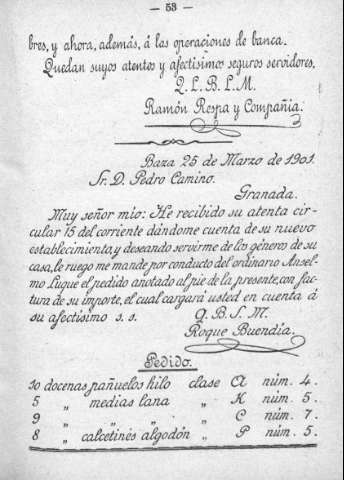 — 53 —
bres, y ahora, además, á las operaciones de banca.
Quedan suyos atentos y afectísimos seguros servidores,
Q. L. B. L. M.
Ramón Respa y Compañía.
Baza 25 de Marzo de 1901.
Sr. D. Pedro Camino.
Granada.
Muy señor mío: He recibido su atenta cir-
cular 15 del corriente dándome cuenta de su nuevo
establecimiento, y deseando servirme de los géneros de su
casa, le ruego me mande por conducto del ordinario Ansel-
mo Luque el pedido anotado al pie de la presente, con fac-
tura de su importe, el cual cargará usted en cuenta á
su afectísimo s. s. Q. B. S. M.
Roque Buendía.
Pedido.
10 docenas pañuelos hilo clase A núm. 4.
5 „ medias lana „ K núm. 5.
9 „ „ „ „ C núm. 7.
8 „ calcetines algodón „ P núm. 5.